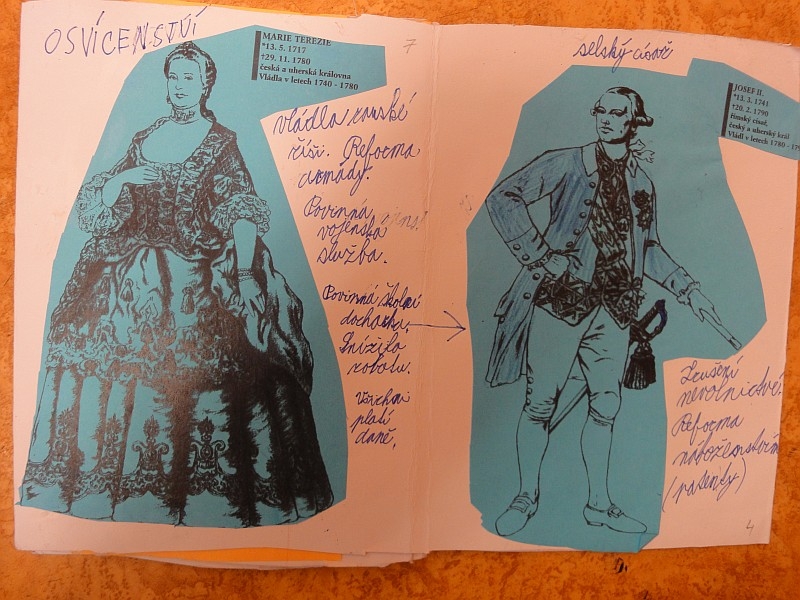 OSVÍCENSTVÍ
MARIE TEREZIE
*13. 5. 1717
†29. 11. 1780
česká a uherská královna
Vládla v letech 1740 - 1780
7
vládla
říši. Reforma
armády.
Povinná
vojenská
služba.
Povinná školní
docházka.
Snížila
robotu.
Všichni
platí
daně.
selský císař
JOSEF II.
*13. 3. 1741
†20. 2. 1790
římský císař,
český a uherský král
Vládl v letech 1780 - 179
Zrušení
nevolnictví.
Reforma
náboženství
(patenty)
4